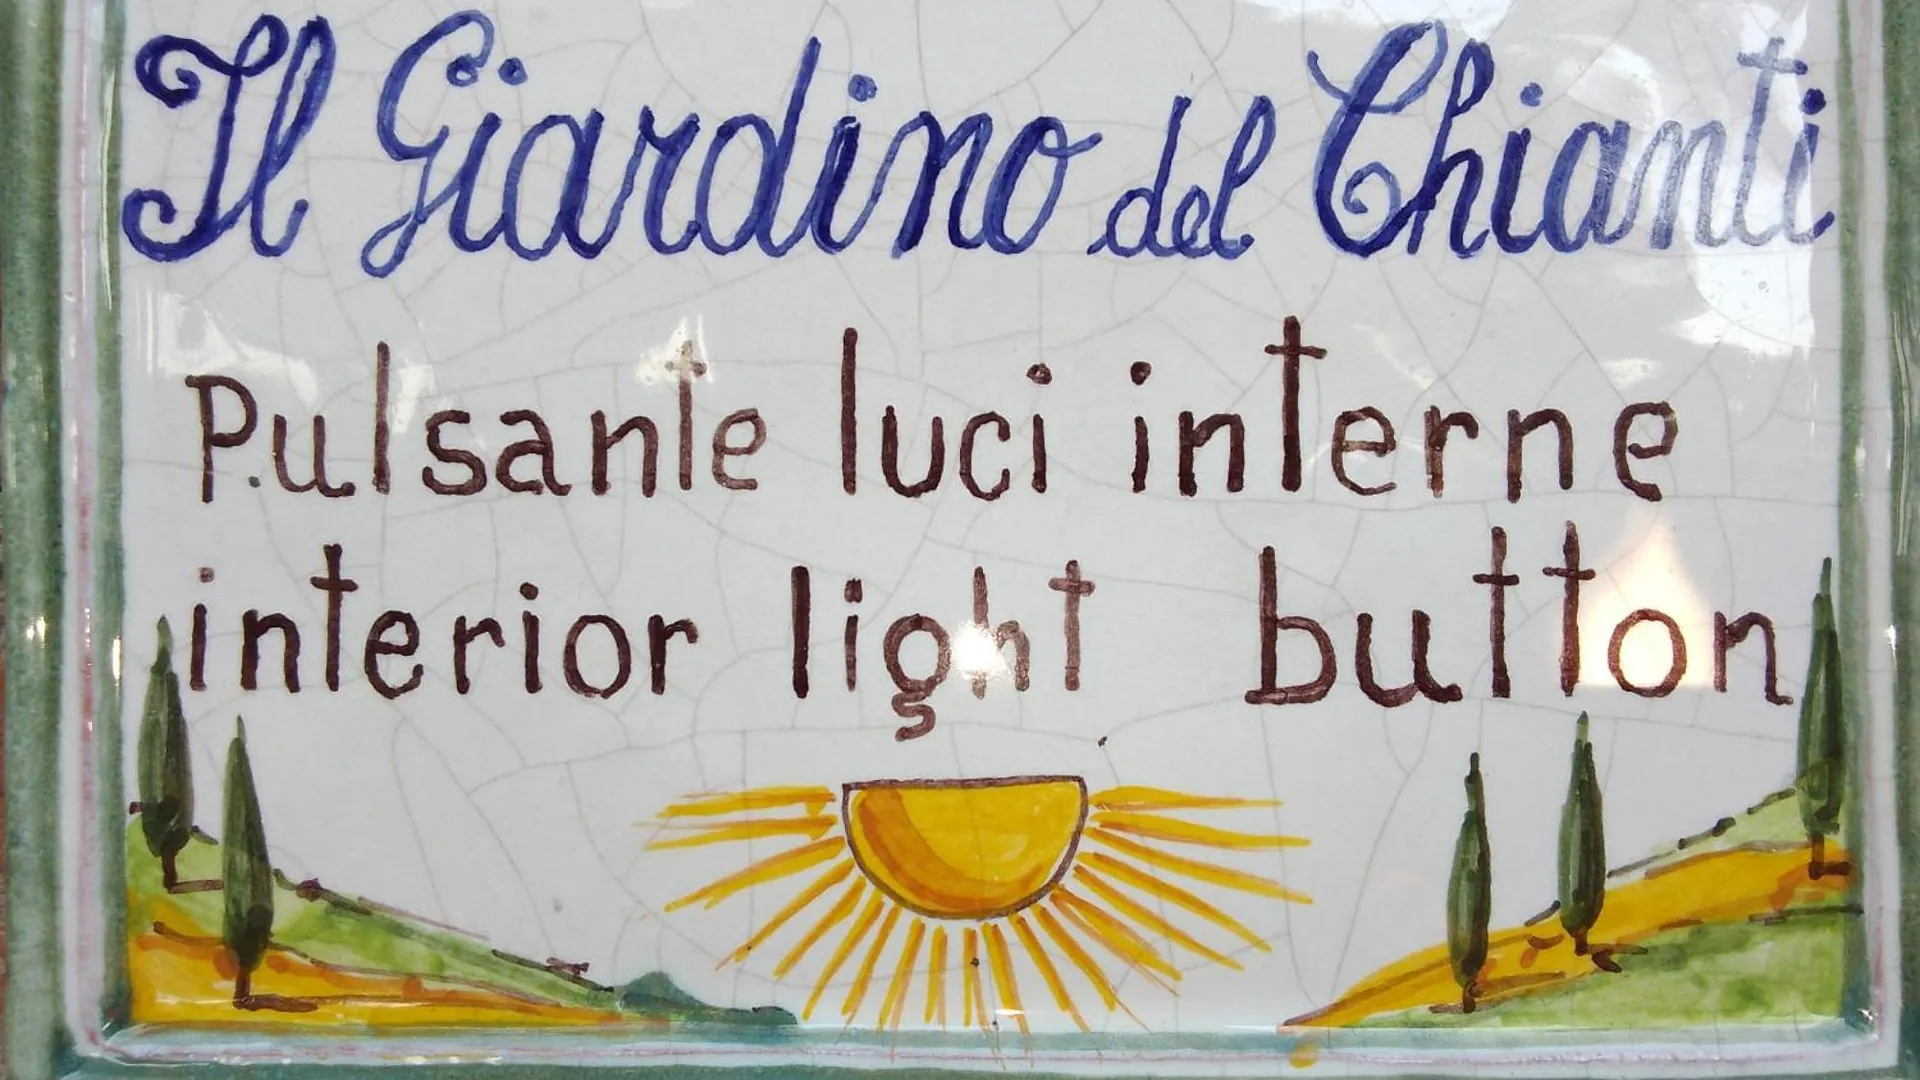 Il Giardino del Chianti
Pulsante luci interne
interior light button